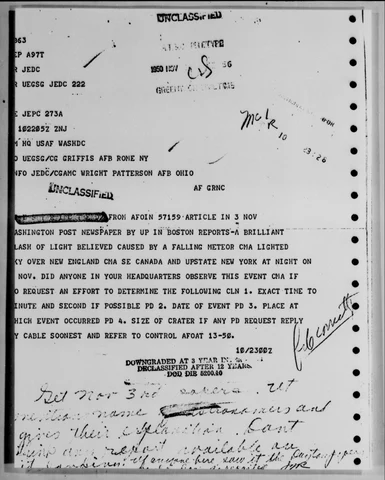 UNCLASSIFIED
363
EP A97T
R JEDC
1950 NOV
R UEGSG JEDC 222
E JEPC 273A
10
102205Z ZNJ
M HQ USAF WASHDC
O UEGSG/CG GRIFFIS AFB ROME NY
NFO JEDC/CGAMC WRIGHT PATTERSON AFB OHIO
UNCLASSIFIED
AF GRNC
FROM AFOIN 57159 ARTICLE IN 3 NOV
ASHINGTON POST NEWSPAPER BY UP IN BOSTON REPORTS-A BRILLIANT
LASH OF LIGHT BELIEVED CAUSED BY A FALLING METEOR CMA LIGHTED
KY OVER NEW ENGLAND CMA SE CANADA AND UPSTATE NEW YORK AT NIGHT ON
NOV. DID ANYONE IN YOUR HEADQUARTERS OBSERVE THIS EVENT CMA IF
O REQUEST AN EFFORT TO DETERMINE THE FOLLOWING CLN 1. EXACT TIME TO
MINUTE AND SECOND IF POSSIBLE PD 2. DATE OF EVENT PD 3. PLACE AT
HICH EVENT OCCURRED PD 4. SIZE OF CRATER IF ANY PD REQUEST REPLY
Y CABLE SOONEST AND REFER TO CONTROL AFOAT 13-50.
10/2300Z
DOWNGRADED AT 3 YEAR
DECLASSIFIED AFTER 12 YEARS.
DOD DIR 5200.10
Get Nov 3rd papers. UP
mention name astronomers and
gives their explanation. Cant
find any report available on
if anyone here saw it the Boston papers